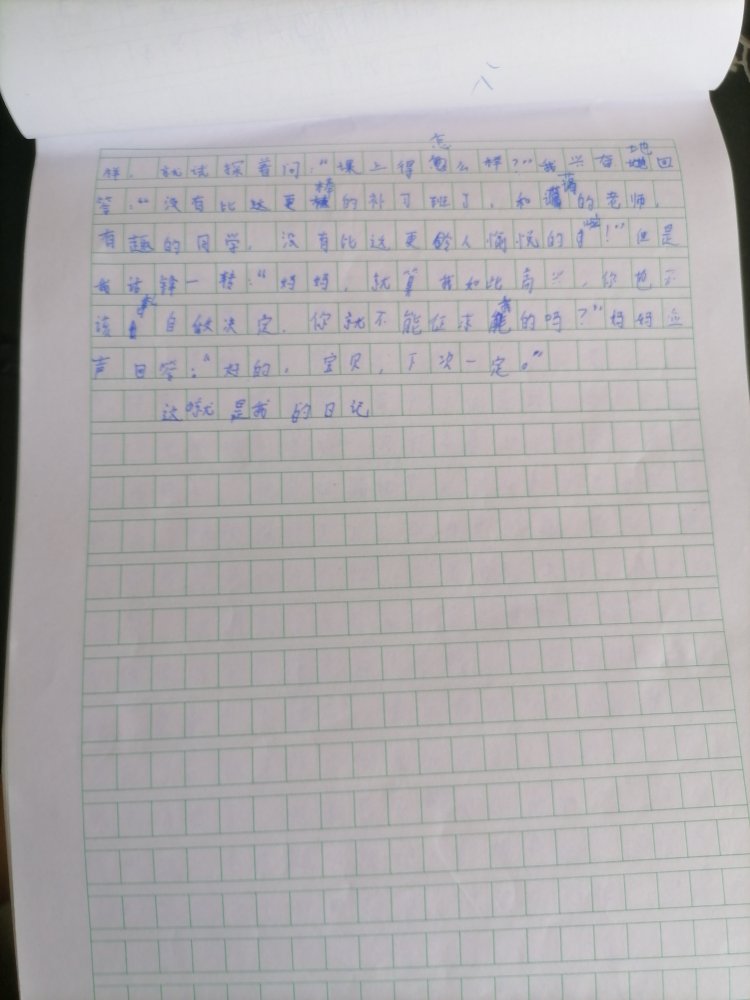 样，就试探着问："课上得怎么样？"我兴奋地回
答："没有比这更棒的补习班了，和蔼的老师，
有趣的同学，没有比这更令人愉悦的了！"但是
我话锋一转："妈妈，就算我如此高兴，你也不
该自做决定，你就不能征求我的吗？"妈妈连
声回答："好的，宝贝，下次一定。"
这就是我的日记